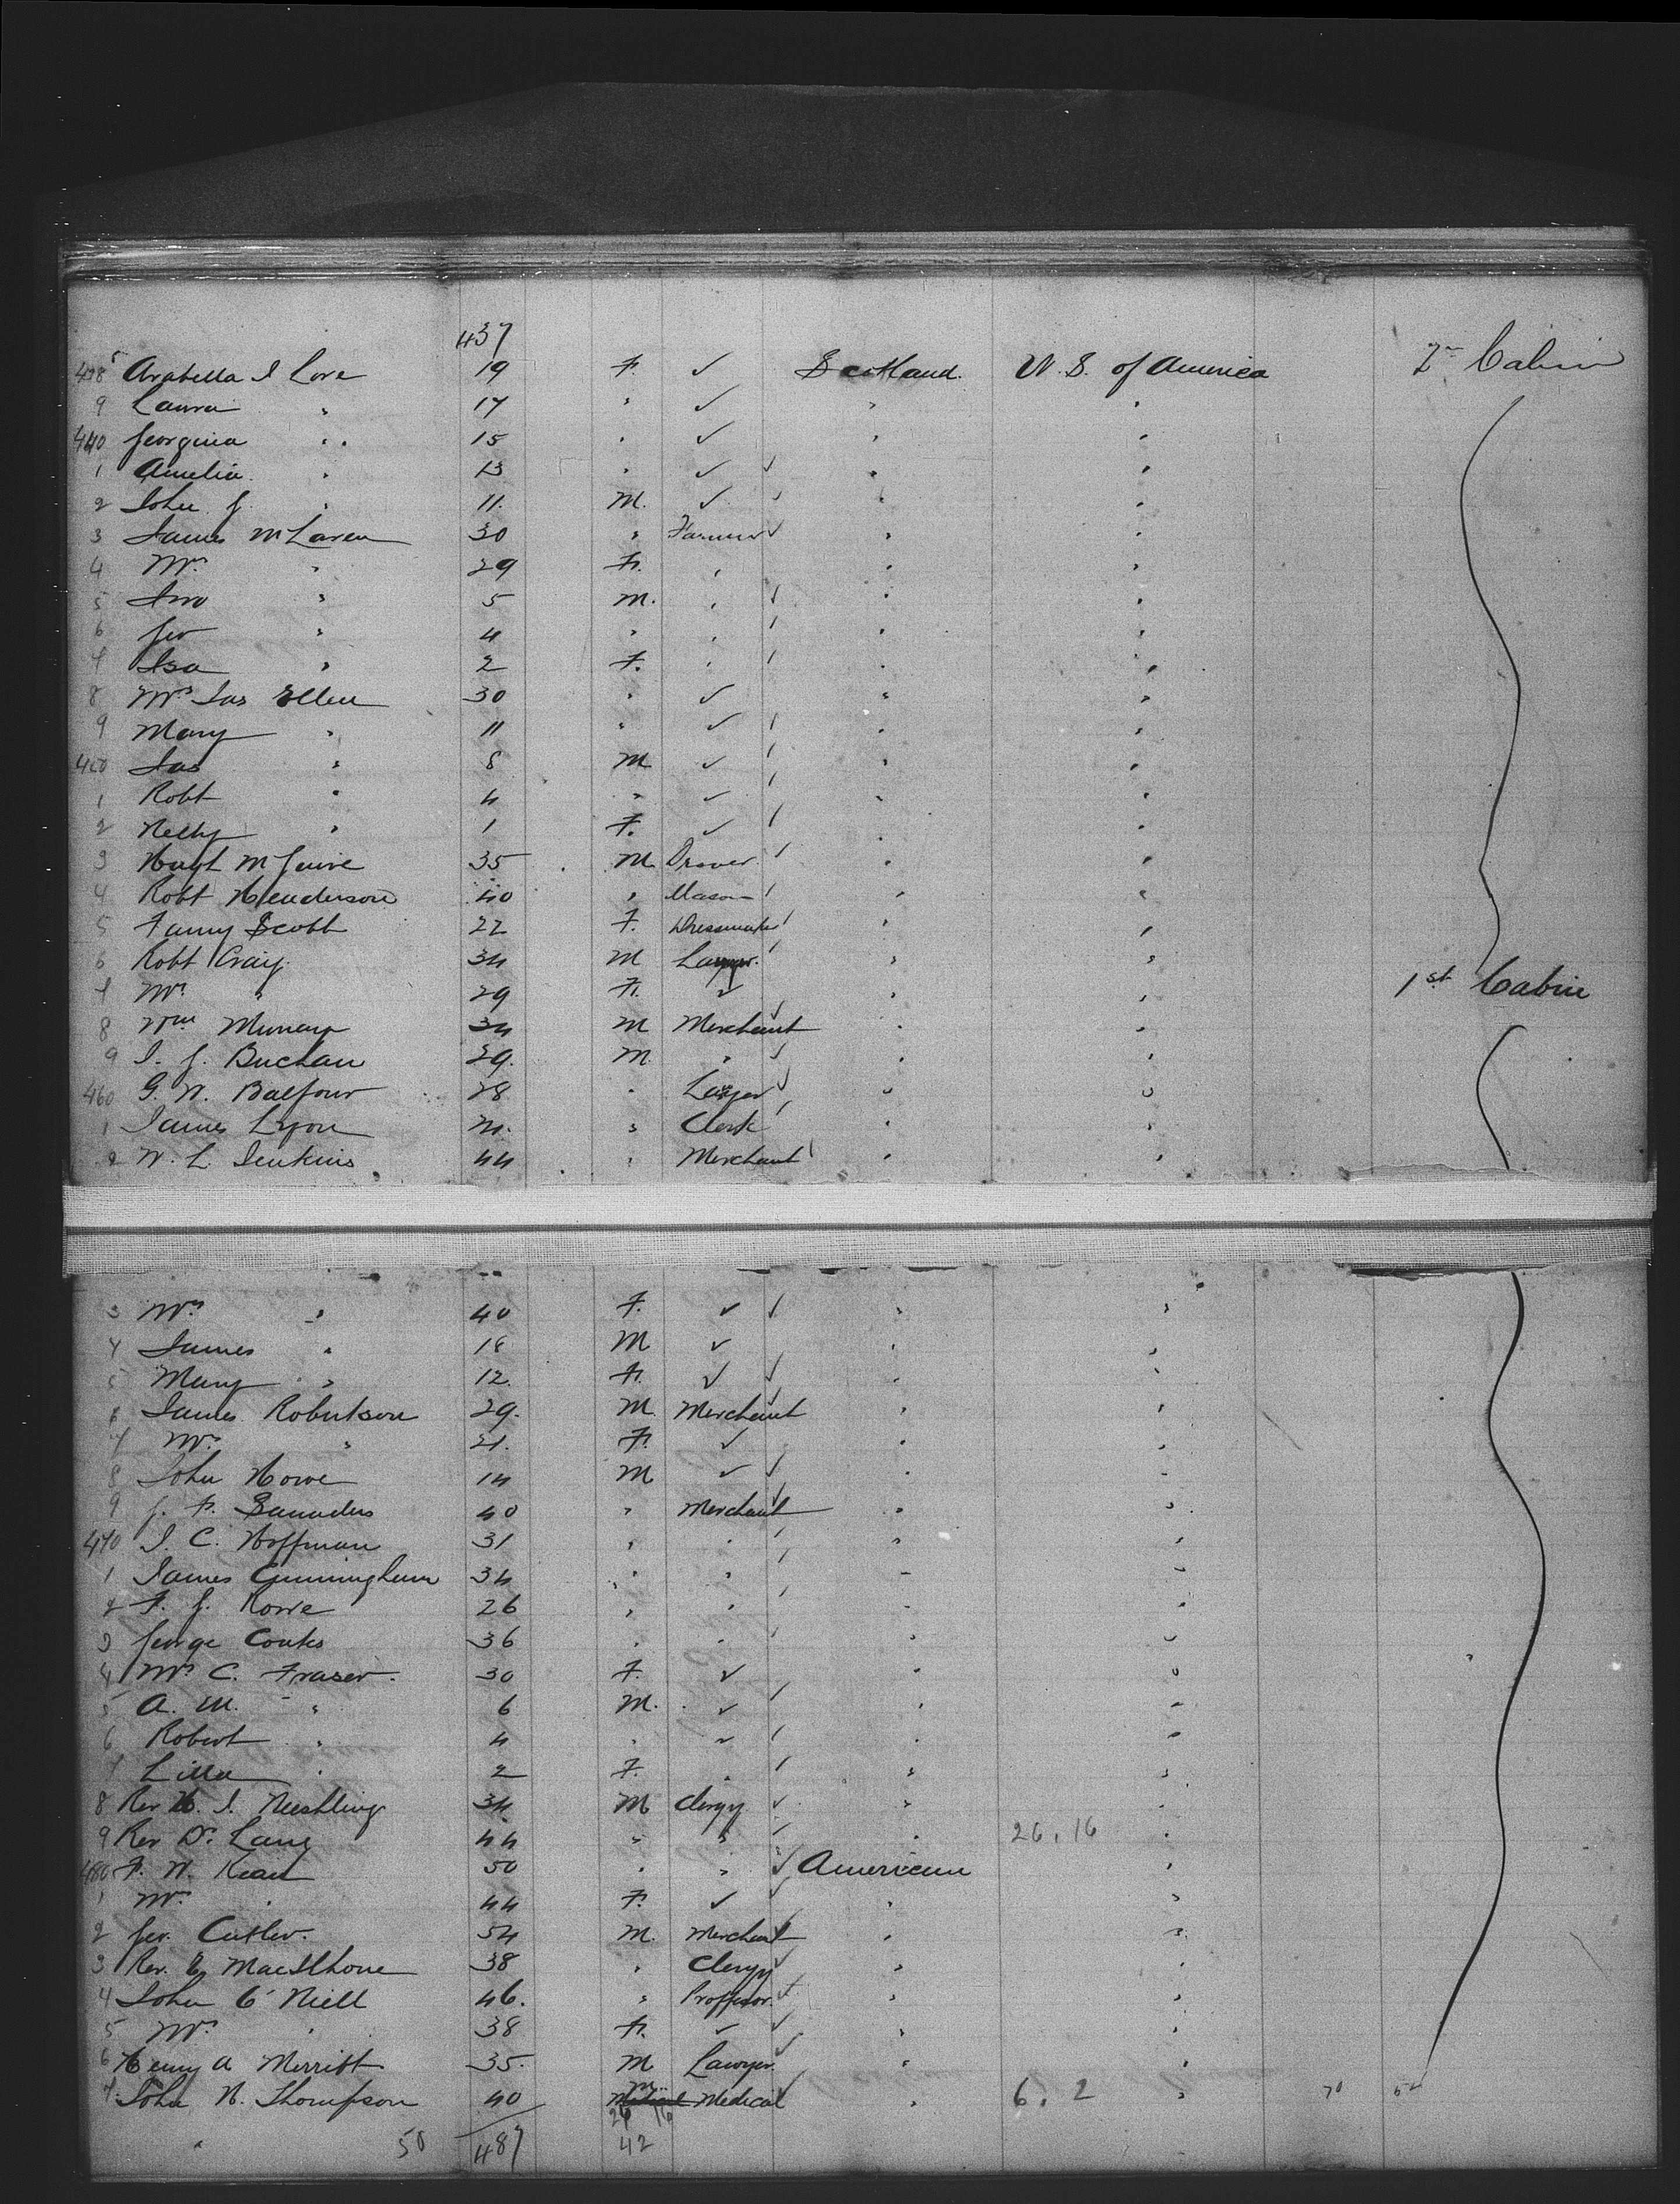 437
438 Arabella I Love 19 F. ✓ Scotland. U. S. of America 2nd Cabin
9 Laura " 17 " ✓ " "
440 Georgina " 15 " ✓ " "
1 Amelia " 13 " ✓ " "
2 John G. " 11. M. ✓ " "
3 James McLaren 30 " Farmer " "
4 Mrs " 29 F. " " "
5 " 5 M. " " "
6 Geo " 4 " " " "
7 Isa " 2 F. " " "
8 Mrs Jas Ellen 30 " ✓ " "
9 Mary " 11 " ✓ " "
450 Jas " 8 M ✓ " "
1 Robt " 4 " ✓ " "
2 Nelly " 1 F. ✓ " "
3 Hugh McGuire 35 M Drover " "
4 Robt Henderson 40 " Mason " "
5 Fanny Scott 22 F. Dressmaker " "
6 Robt Craig 34 M Lawyer. " "
7 Mrs " 29 F. ✓ " " 1st Cabin
8 Wm Murray 34 M Merchant " "
9 J. G. Buchan 29. M. " " "
460 G. W. Balfour 28 " Lawyer " "
1 James Lyon 21. " Clerk " "
2 W. L. Jenkins 44 " Merchant " "
3 Mrs " 40 F. ✓ " "
4 James " 18 M ✓ " "
5 Mary " 12. F. ✓ " "
6 James Robertson 29. M Merchant " "
7 Mrs " 21. F. ✓ " "
8 John Howe 14 M ✓ " "
9 G. F. Saunders 40 " Merchant " "
470 J. C. Hoffman 31 " " " "
1 James Cunningham 34 " " " "
2 F. G. Rowe 26 " " " "
3 George Coats 36 " " " "
4 Mrs C. Fraser. 30 F. ✓ " "
5 A. M. " 6 M. ✓ " "
6 Robert " 4 " ✓ " "
7 Lilla " 2 F. " " "
8 Rev H. J. 34 M Clergy " "
9 Rev Dr. Lang 44 " " " 26.16 "
480 F. W. 50 " " American "
1 Mrs " 44 F. ✓ " "
2 Geo. Cutler. 54 M. Merchant " "
3 Rev. E. MacIlhone 38 " Clergy " "
4 John O'Niell 46. " Proffesor. " "
5 Mrs " 38 F. ✓ " "
6 Henry A Merritt 35. M Lawyer " "
7 John N. Thompson 40 M Medical Medical " 6.2 " 70 52
26 16
50 487 42